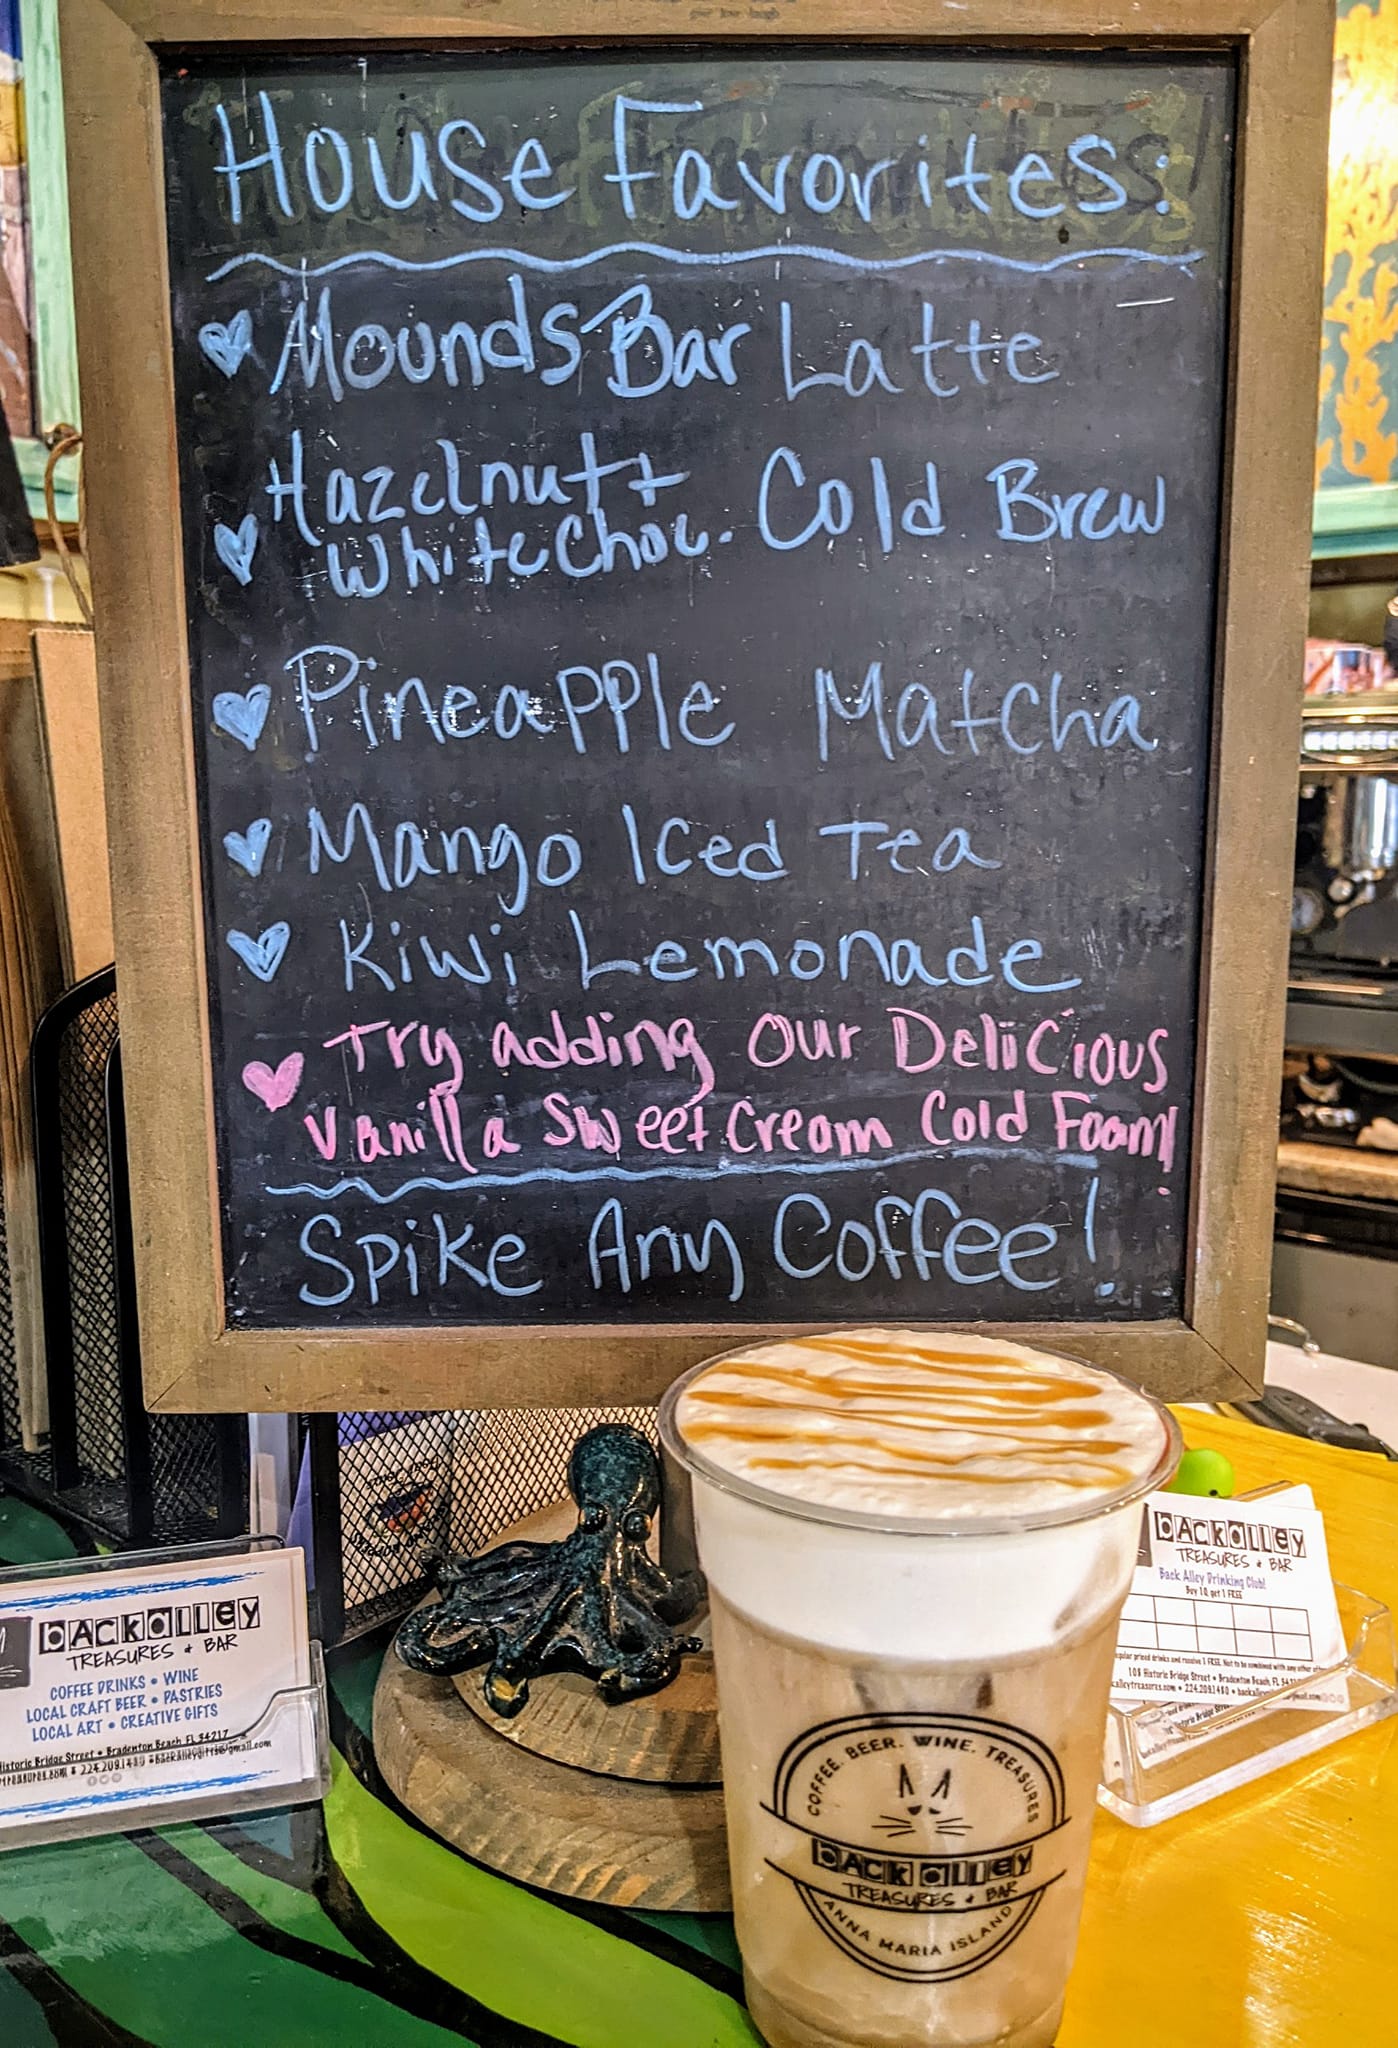 House Favorites:
Mounds Bar Latte
Hazelnut +
White Choc. Cold Brew
Pineapple Matcha
Mango Iced Tea
Kiwi Lemonade
Try adding our Delicious
Vanilla Sweet Cream Cold Foam!
Spike Any Coffee!
bACkalley
TREASURES & BAR
COFFEE DRINKS • WINE
LOCAL CRAFT BEER • PASTRIES
LOCAL ART • CREATIVE GIFTS
Historic Bridge Street • Bradenton Beach, FL 34217
224.209.1480
COFFEE. BEER. WINE. TREASURES
bACkalley
TREASURES & BAR
ANNA MARIA ISLAND
bACkalley
TREASURES & BAR
Back Alley Drinking Club!
Buy 10, get 1 FREE
priced drinks and receive 1 FREE. Not to be combined with any other
108 Historic Bridge Street • Bradenton Beach, FL
224.209.1480